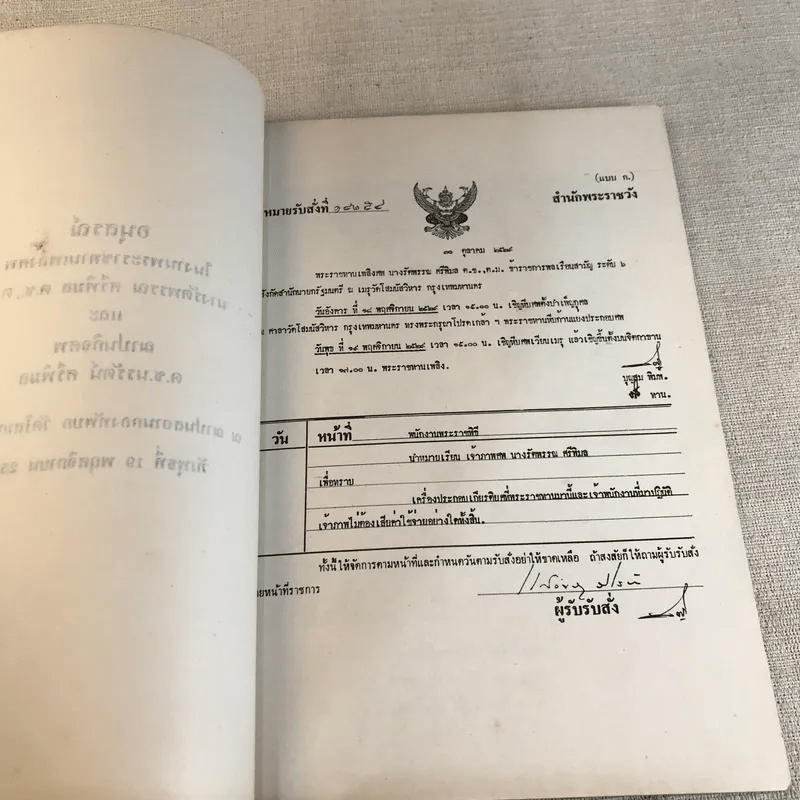 อนุสรณ์
ในงานพระราชทานเพลิงศพ
นางรัศพรรณ ศรีพิมล ต.ช., ต.
และ
ฌาปนกิจศพ
ด.ช.นรรัตน์ ศรีพิมล
ณ ฌาปนสถานกองทัพบก วัดโสม
วันพุธที่ 19 พฤศจิกายน 25
(แบบ ก.)
หมายรับสั่งที่ ๑๔๒๕๔
สำนักพระราชวัง
๓๐ ตุลาคม ๒๕๒๙
พระราชทานเพลิงศพ นางรัศพรรณ ศรีพิมล ต.ช.,ต.ม. ข้าราชการพลเรือนสามัญ ระดับ ๖
สังกัดสำนักนายกรัฐมนตรี ณ เมรุวัดโสมนัสวิหาร กรุงเทพมหานคร
วันอังคาร ที่ ๑๘ พฤศจิกายน ๒๕๒๙ เวลา ๑๕.๐๐ น. เชิญหีบศพตั้งบำเพ็ญกุศล
ณ ศาลาวัดโสมนัสวิหาร กรุงเทพมหานคร ทรงพระกรุณาโปรดเกล้า ฯ พระราชทานหีบก้านแยงประกอบศพ
วันพุธ ที่ ๑๙ พฤศจิกายน ๒๕๒๙ เวลา ๑๕.๐๐ น. เชิญหีบศพเวียนเมรุ แล้วเชิญขึ้นตั้งบนจิตกาธาน
เวลา ๑๗.๐๐ น. พระราชทานเพลิง.
บุญสม พิมพ์.
ทาน.
วัน
หน้าที่ พนักงานพระราชพิธี
นำหมายเรียน เจ้าภาพศพ นางรัศพรรณ ศรีพิมล
เพื่อทราบ
เครื่องประกอบเกียรติยศที่พระราชทานมานี้และเจ้าพนักงานที่มาปฏิบัติ
เจ้าภาพไม่ต้องเสียค่าใช้จ่ายอย่างใดทั้งสิ้น.
ทั้งนี้ให้จัดการตามหน้าที่และกำหนดวันตามรับสั่งอย่าให้ขาดเหลือ ถ้าสงสัยก็ให้ถามผู้รับรับสั่ง
หน้าที่ราชการ
ผู้รับรับสั่ง